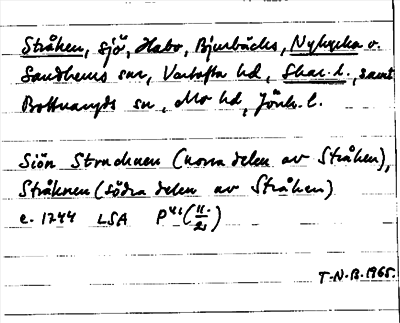 Stråken, sjö, Habo, Bjurbäcks, Nykyrka o.
Sandhems snr, Vartofta hd, Skar. l., samt
Bottnaryds sn, Mo hd, Jönk. l.
Sjön Strachnen (norra delen av Stråken),
Stråknen (södra delen av Stråken)
c. 1744 LSA P 46 (11/21)
T.N.B. 1965.